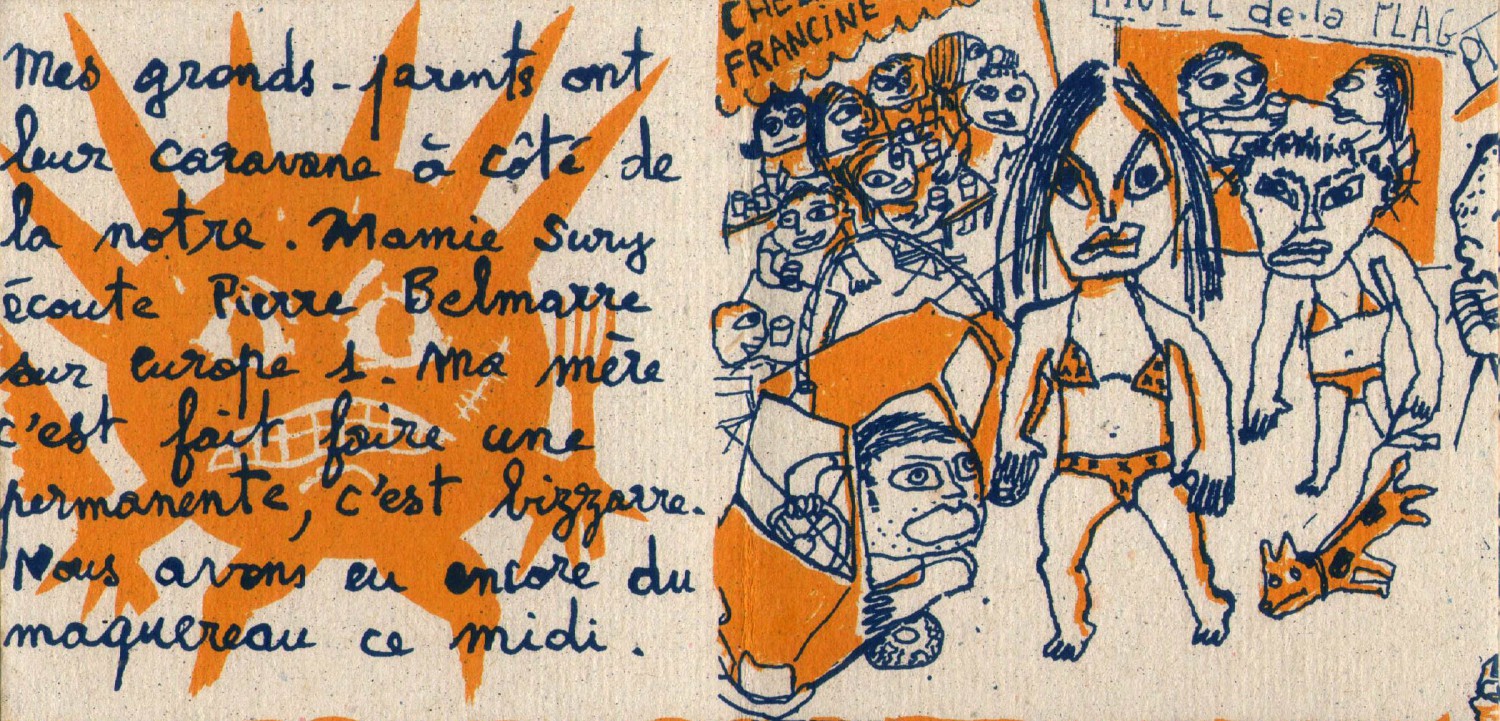 Mes grands-parents ont
leur caravane à côté de
la notre. Mamie Sury
écoute Pierre Belmarre
sur europe 1. Ma mère
c'est fait faire une
permanente, c'est bizzarre.
Nous avons eu encore du
maquereau ce midi.
CHEZ
FRANCINE
HOTEL de.la PLAGE